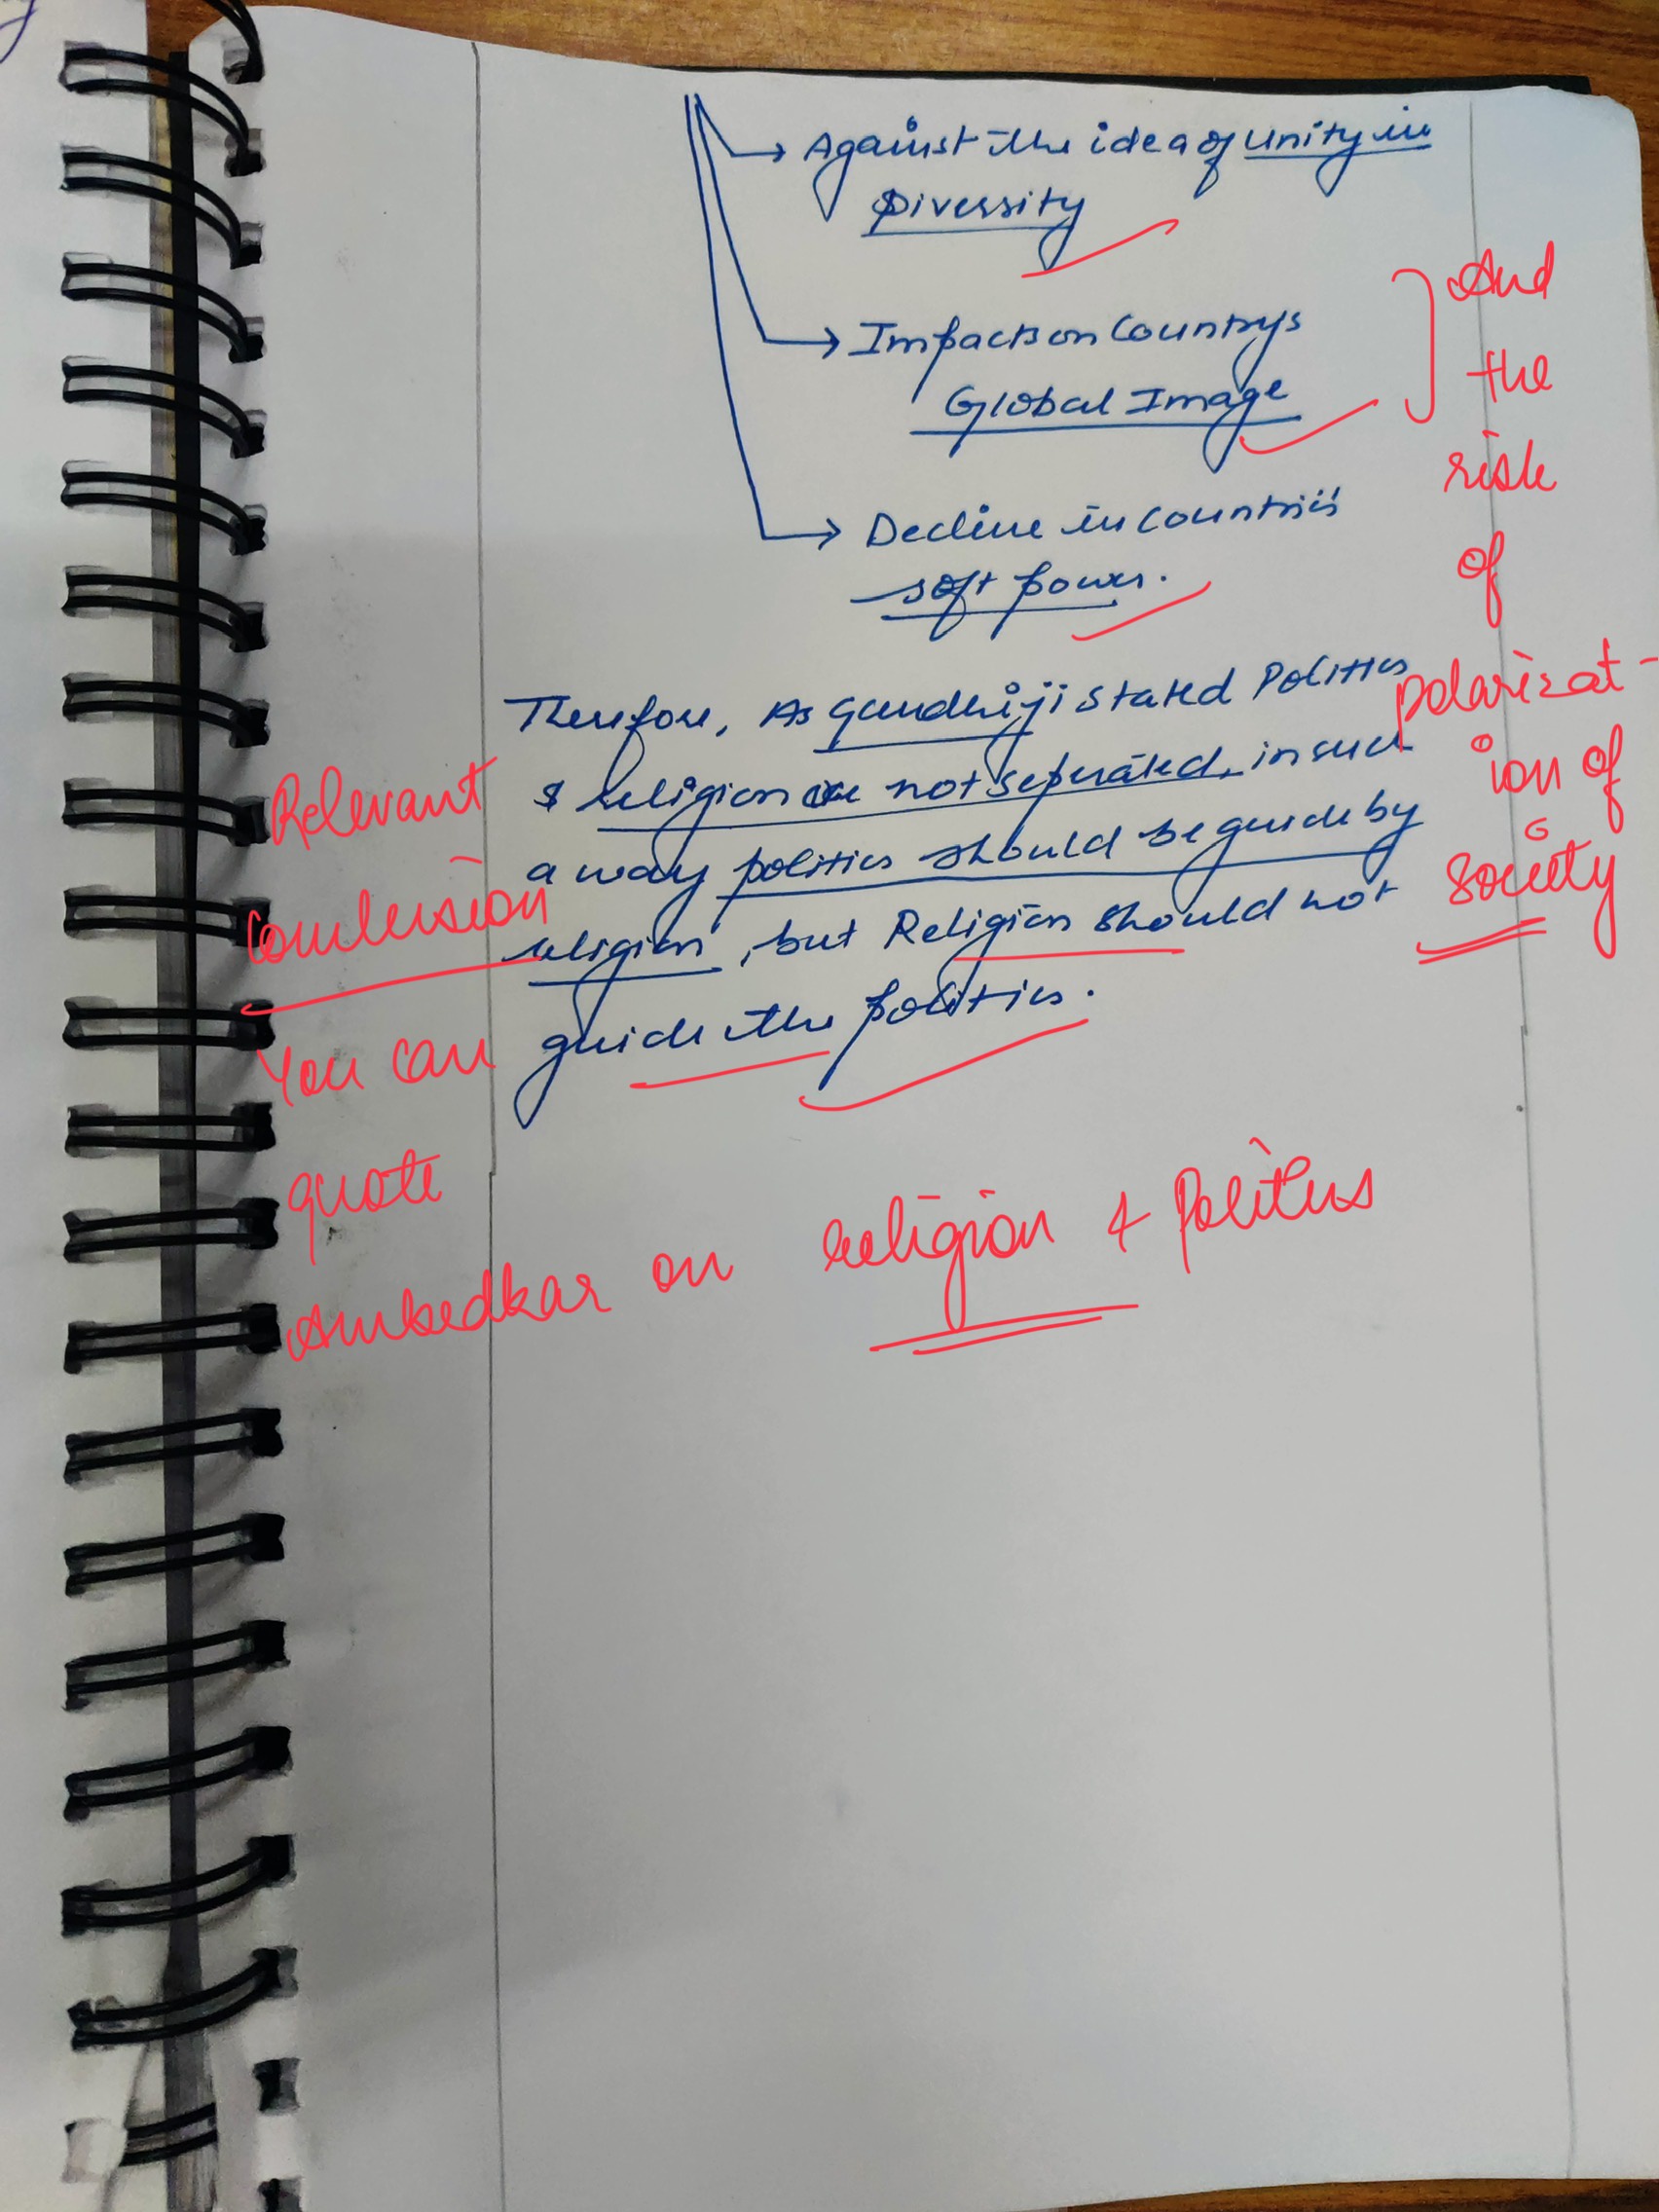 Against the idea of unity in
Diversity
Impacts on Countrys
Global Image
Decline in countries
soft power.
And
the
risk
of
polarizat-
ion of
society
Therefore, As gandhiji stated Politics
& religion are not seperated, in such
a way politics should be guide by
religion, but Religion should not
guide the politics.
Relevant
conclusion
You can
quote
Ambedkar on religion & Politics